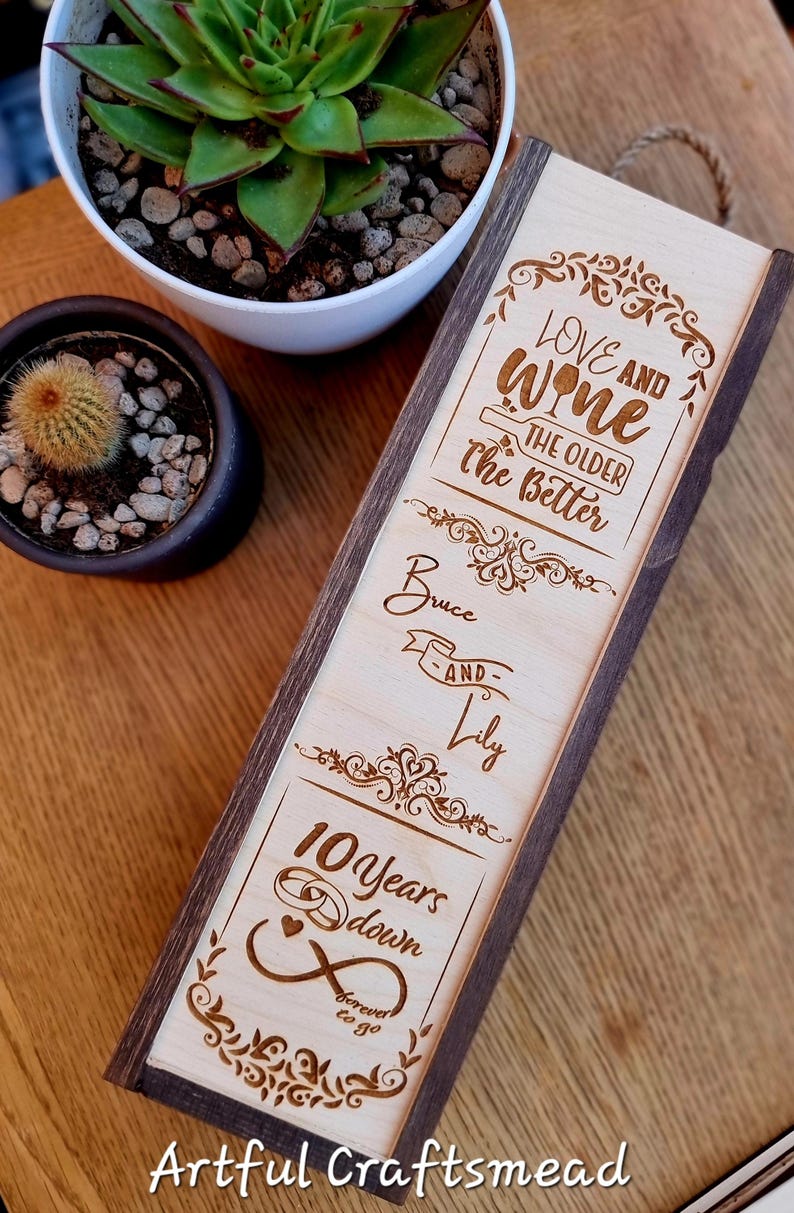 LOVE AND
Wine
THE OLDER
The Better
Bruce
-AND-
Lily
10 Years
down
forever
to go
Artful Craftsmead